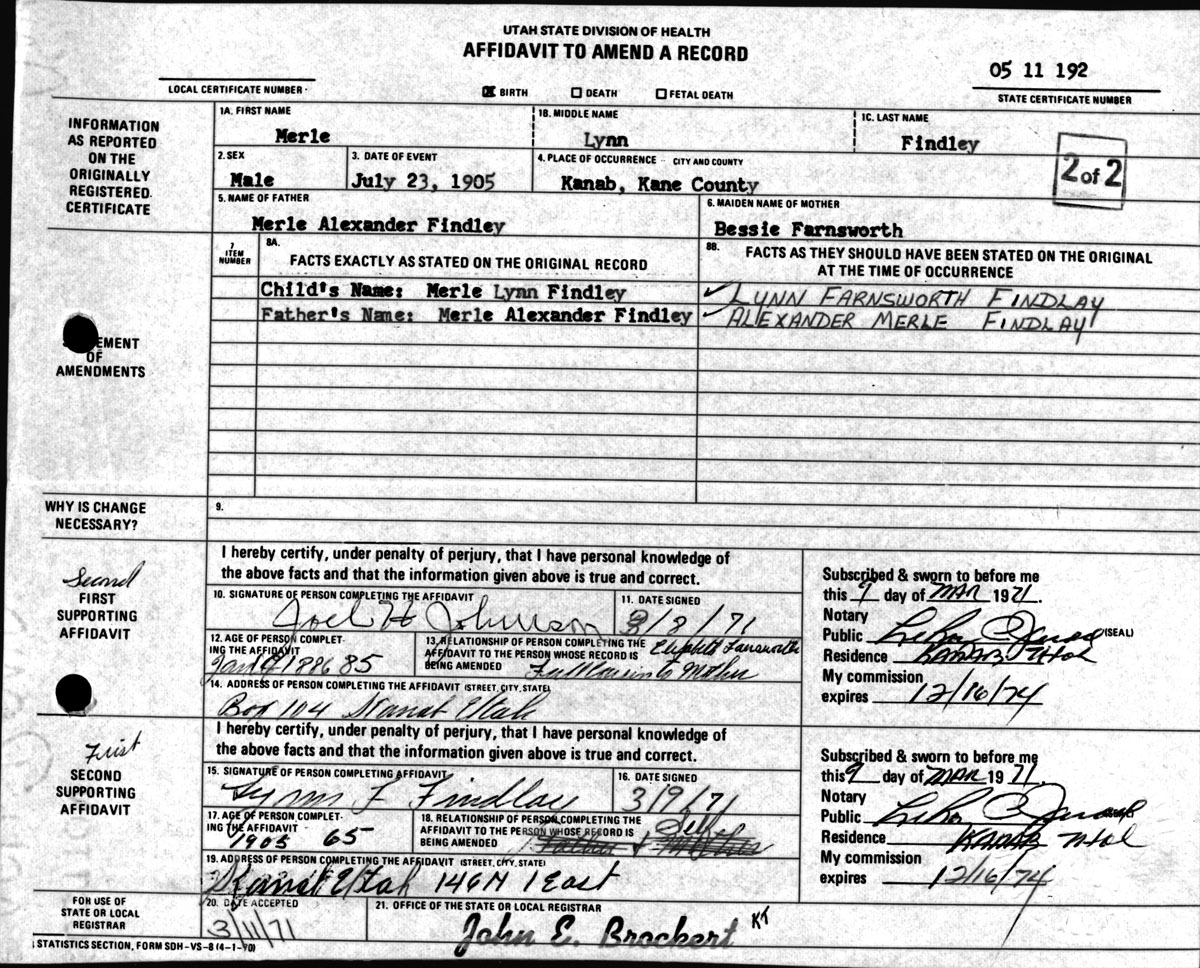 UTAH STATE DIVISION OF HEALTH
AFFIDAVIT TO AMEND A RECORD
05 11 192
LOCAL CERTIFICATE NUMBER
BIRTH DEATH FETAL DEATH
STATE CERTIFICATE NUMBER
INFORMATION AS REPORTED ON THE ORIGINALLY REGISTERED CERTIFICATE
1A. FIRST NAME 1B. MIDDLE NAME 1C. LAST NAME
Merle Lynn Findley
2. SEX 3. DATE OF EVENT 4. PLACE OF OCCURRENCE - CITY AND COUNTY
Male July 23, 1905 Kanab, Kane County
2 of 2
5. NAME OF FATHER 6. MAIDEN NAME OF MOTHER
Merle Alexander Findley Bessie Farnsworth
7 ITEM NUMBER
8A. FACTS EXACTLY AS STATED ON THE ORIGINAL RECORD
8B. FACTS AS THEY SHOULD HAVE BEEN STATED ON THE ORIGINAL
AT THE TIME OF OCCURRENCE
Child's Name: Merle Lynn Findley ✓ LYNN FARNSWORTH FINDLAY
Father's Name: Merle Alexander Findley ✓ ALEXANDER MERLE FINDLAY
EMENT
OF
AMENDMENTS
WHY IS CHANGE
NECESSARY?
9.
Second
FIRST
SUPPORTING
AFFIDAVIT
I hereby certify, under penalty of perjury, that I have personal knowledge of
the above facts and that the information given above is true and correct.
10. SIGNATURE OF PERSON COMPLETING THE AFFIDAVIT 11. DATE SIGNED
Joel H Johnson 3/8/71
12. AGE OF PERSON COMPLET-
ING THE AFFIDAVIT
1886 85
13. RELATIONSHIP OF PERSON COMPLETING THE
AFFIDAVIT TO THE PERSON WHOSE RECORD IS
BEING AMENDED
Farnsworth
to Mother
14. ADDRESS OF PERSON COMPLETING THE AFFIDAVIT (STREET, CITY, STATE)
Box 104 Kanab Utah
Subscribed & sworn to before me
this 9 day of MAR 1971.
Notary
Public (SEAL)
Residence KANAB Utah
My commission
expires 12/16/74
First
SECOND
SUPPORTING
AFFIDAVIT
I hereby certify, under penalty of perjury, that I have personal knowledge of
the above facts and that the information given above is true and correct.
15. SIGNATURE OF PERSON COMPLETING AFFIDAVIT 16. DATE SIGNED
Lynn F Findlay 3/9/71
17. AGE OF PERSON COMPLET-
ING THE AFFIDAVIT
1905 65
18. RELATIONSHIP OF PERSON COMPLETING THE
AFFIDAVIT TO THE PERSON WHOSE RECORD IS
BEING AMENDED
Self
Father & Mother
19. ADDRESS OF PERSON COMPLETING THE AFFIDAVIT (STREET, CITY, STATE)
Kanab Utah 146 N 1 East
Subscribed & sworn to before me
this 9 day of MAR 1971.
Notary
Public
Residence KANAB Utah
My commission
expires 12/16/74
FOR USE OF
STATE OR LOCAL
REGISTRAR
20. DATE ACCEPTED 21. OFFICE OF THE STATE OR LOCAL REGISTRAR
3/11/71 John E. Brockert KT
STATISTICS SECTION, FORM SDH-VS-8 (4-1-70)